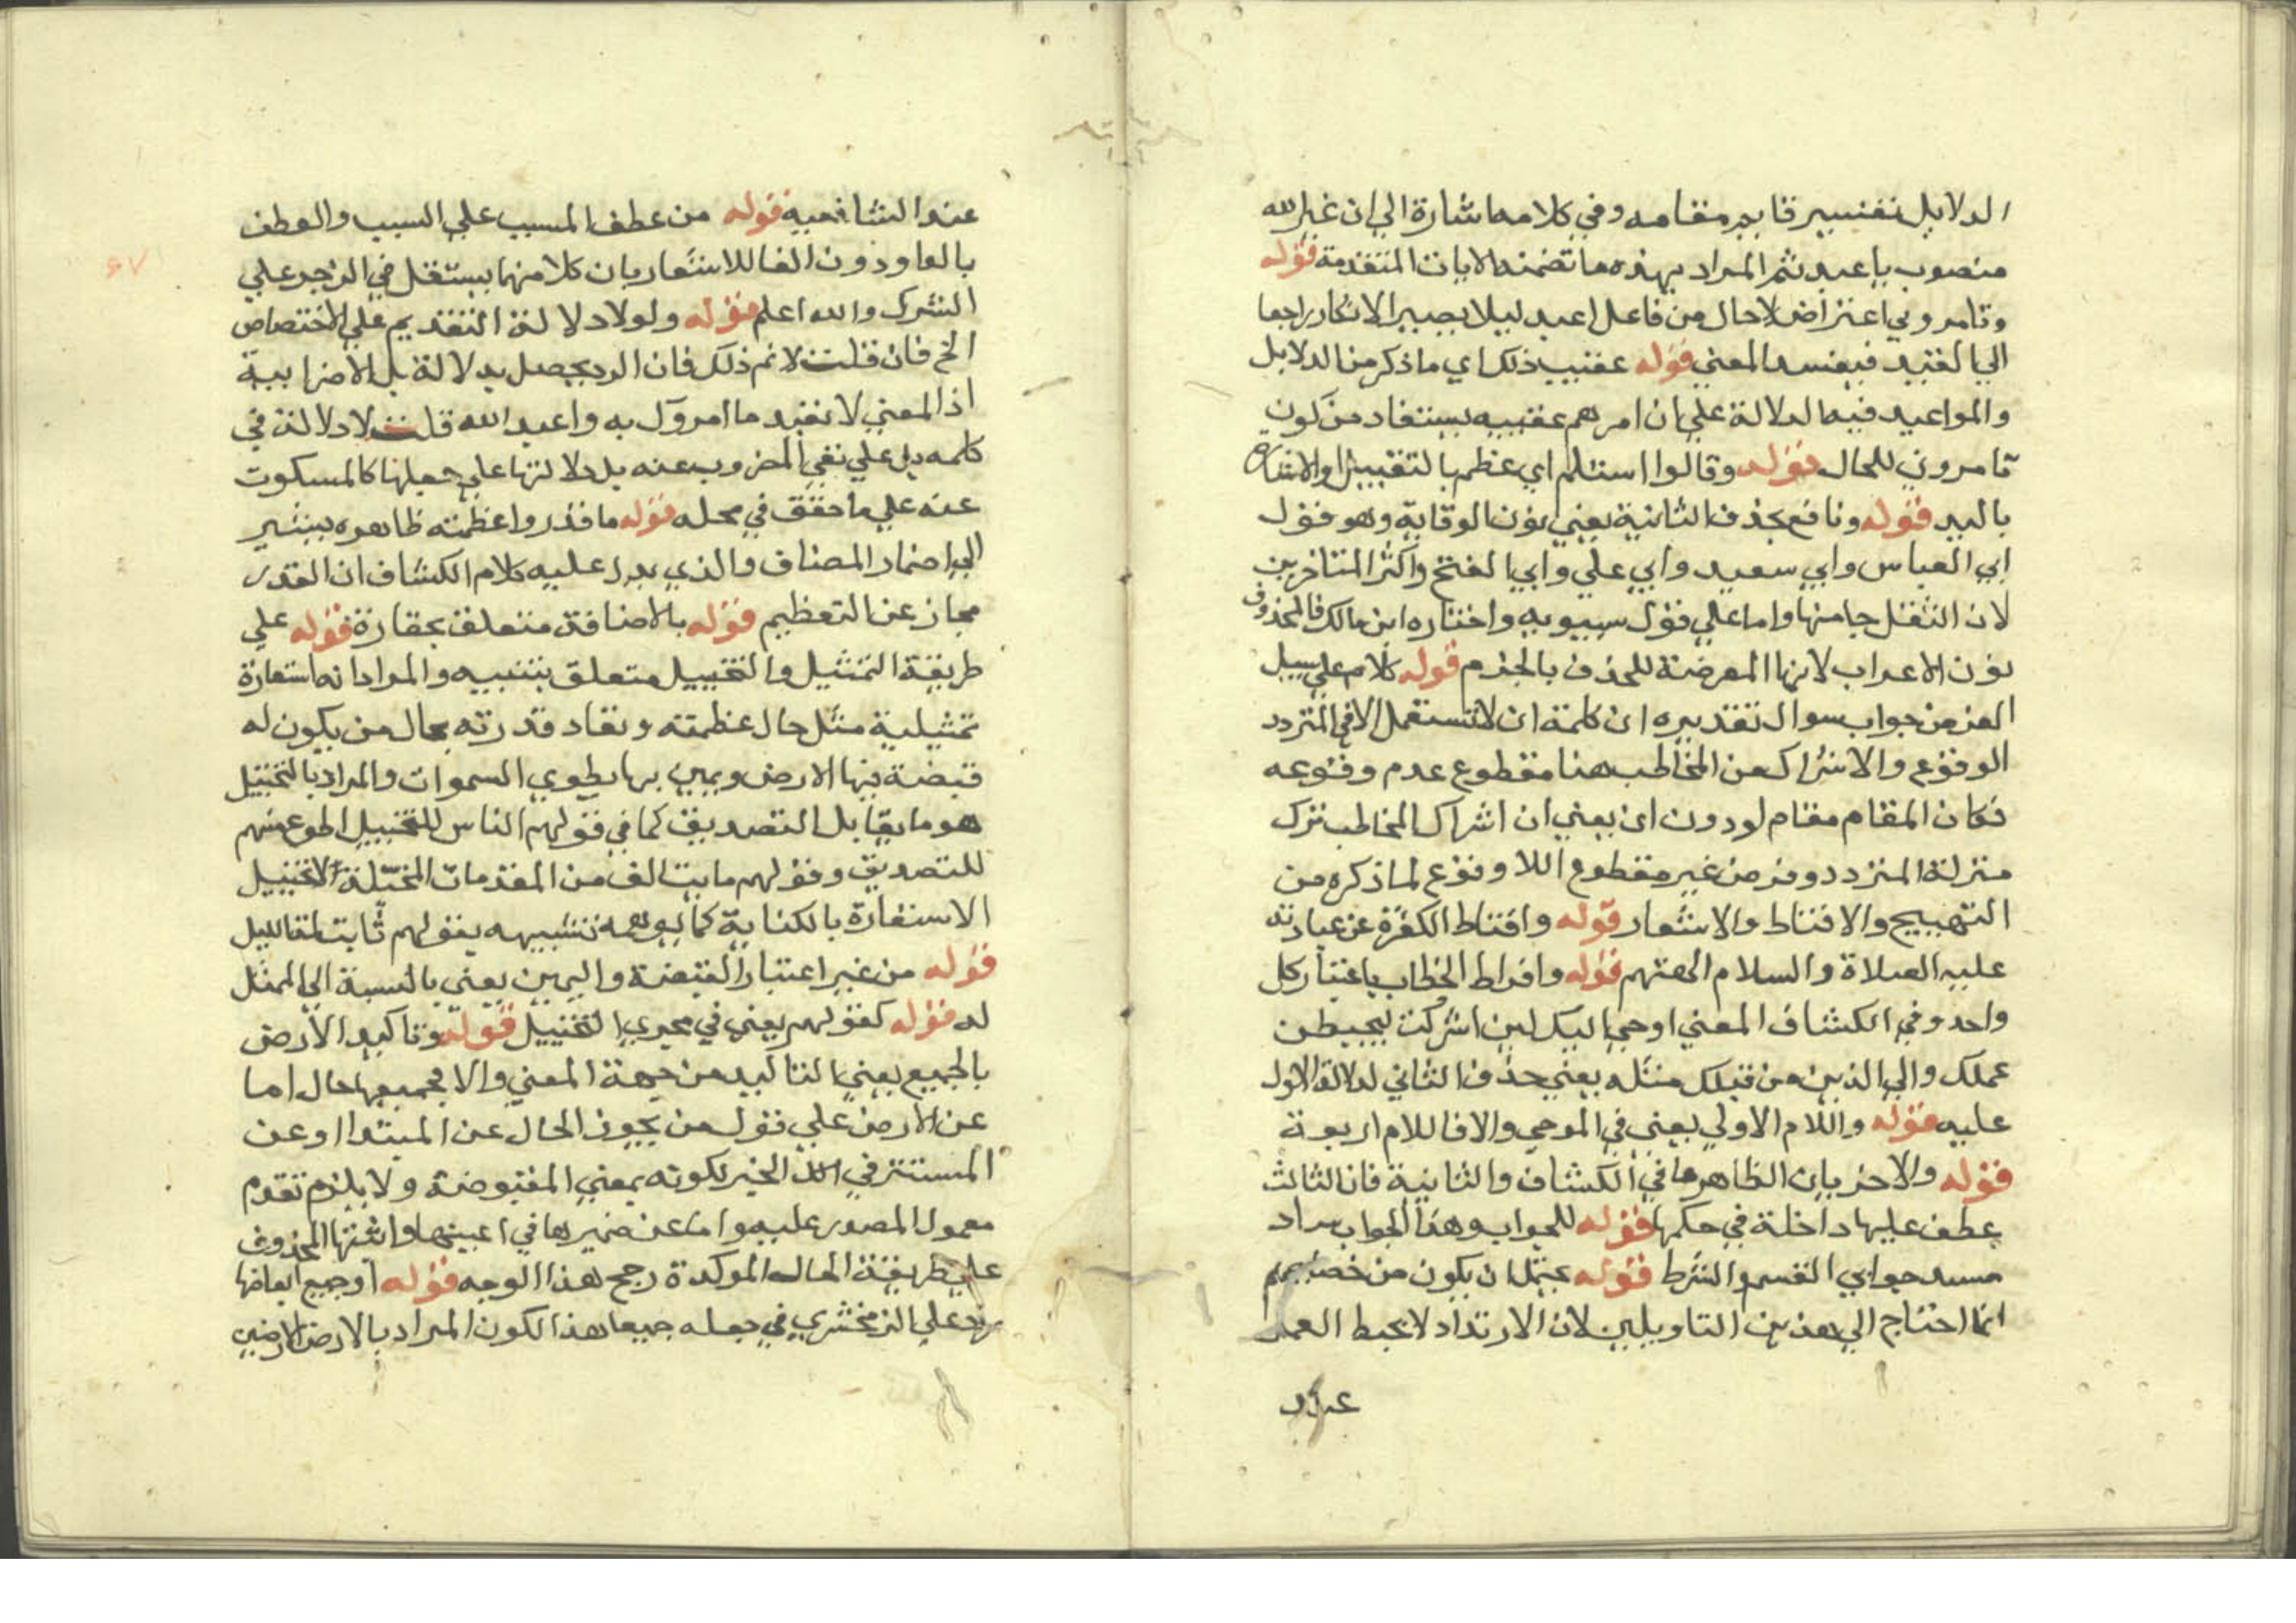 الدلايل تفسير قايم مقامه وفي كلامه اشارة الي ان غير الله
منصوب باعبد ثم المراد بهذه ما تضمنه الايات المتقدمة قوله
وتامروني اعتراض لا حال من فاعل اعبد ليلا يصير الانكار راجعا
الي القيد فيفسد المعني قوله عقيب ذلك اي ما ذكر من الدلايل
والمواعيد فيه الدلالة علي ان امرهم عقيبه يستفاد من كون
تامروني للحال قوله وقالوا استلم اي عظم بالتقبيل والاشارة
باليد قوله ونافع بحذف الثانية يعني نون الوقاية وهو قول
ابي العباس وابي سعيد وابي علي وابي الفتح واكثر المتاخرين
لان الثقل جا منها واما علي قول سيبويه واختاره ابن مالك فالمحذوف
نون الاعراب لانها المعرضة للحذف بالجزم قوله كلام علي سبيل
الفرض جواب سوال تقديره ان كلمة ان لا تستعمل الا في المتردد
الوقوع والاشراك من المخاطب هنا مقطوع عدم وقوعه
فكان المقام مقام لو دون ان يعني ان اشراك المخاطب نزل
منزلة المتردد وفرض غير مقطوع اللا وقوع لما ذكره من
التهييج والاقناط والاشعار قوله واقناط الكفرة عن عبادته
عليه الصلاة والسلام الهتهم قوله وافراط الخطاب باعتبار كل
واحد وفي الكشاف المعني اوحي اليك لين اشركت ليحبطن
عملك والي الذين من قبلك مثله يعني حذف الثاني لدلالة الاول
عليه قوله واللام الاولي يعني في الموحي والا فاللام اربعة
قوله والاخريان الظاهر ما في الكشاف والثانية فان الثالث
عطف عليها داخلة في حكمها قوله للجواب وهذا الجواب ساد
مسد جوابي القسم والشرط قوله يحتمل ان يكون من خصايصهم
انما احتاج الي هذين التاويلين لان الارتداد لا يحبط العمل
عند
عند الشافعيه قوله من عطف المسبب علي السبب والعطف
بالواو دون الفا للاشعار بان كلا منهما يستقل في الزجر علي
الشرك والله اعلم قوله ولولا دلالة التقديم علي الاختصاص
الخ فان قلت لا نم ذلك فان الرد يحصل بدلالة بل الاضرابية
اذ المعني لا تعبد ما امروك به واعبد الله قلت لا دلالة في
كلمه بل علي نفي المضروب عنه بل دلالتها علي جعلها كالمسكوت
عنه علي ما حقق في محله قوله ما قدروا عظمته ظاهره يشير
الي اضمار المضاف والذي يدل عليه كلام الكشاف ان القدر
مجاز عن التعظيم قوله بالاضافة متعلق بحقارة قوله علي
طريقة التمثيل والتخييل متعلق بتنبيه والمراد انه استعارة
تمثيلية مثل حال عظمته ونفاد قدرته بحال من يكون له
قبضة فيها الارض ويمين بها يطوي السموات والمراد بالتخييل
هو ما يقابل التصديق كما في قولهم الناس للتخييل اطوع منهم
للتصديق وقولهم ما يتالف من المقدمات المخيلة لا تخييل
الاستعارة بالكناية كما يوهمه تشبيهه بقولهم ثابت لمة الليل
قوله من غير اعتبار القبضة واليمين يعني بالنسبة الي الممثل
له قوله كقولهم يعني في مجري التخييل قوله وتاكيد الارض
بالجميع يعني التاكيد من جهة المعني والا فجميعها حال اما
عن الارض علي قول من يجوز الحال عن المبتدا او عن
المستتر في الخبر لكونه بمعني المقبوضة ولا يلزم تقدم
معمول المصدر عليه واما عن ضميرها في اعنيها واثبتها المحذوف
علي طريقة الحال الموكدة رجح هذا الوجه قوله اوجميع ابعاضها
يرد علي الزمخشري في جعله جميعا هذا لكون المراد بالارض الارضين